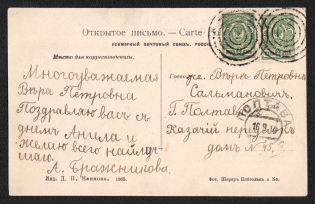 Открытое письмо. — Carte
ВСЕМІРНЫЙ ПОЧТОВЫЙ СОЮЗЪ. РОССІЯ
Мѣсто для корреспонденціи.
Многоуважаемая
Вѣра Петровна
Поздравляю васъ съ
днемъ Ангела и
желаю всего найлуч-
шаго.
А. Бражникова.
Госпоже. Вѣрѣ Петровнѣ
Сальмановичъ.
Г. Полтава
Казачій переулокъ
домъ № 45.
ПОЛТАВА
16 9
Изд. Д. П. 1905.
Фот. Шереръ Набгольцъ и Ко.